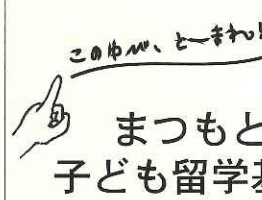 このゆび、とーまれ!
まつもと
子ども留学基